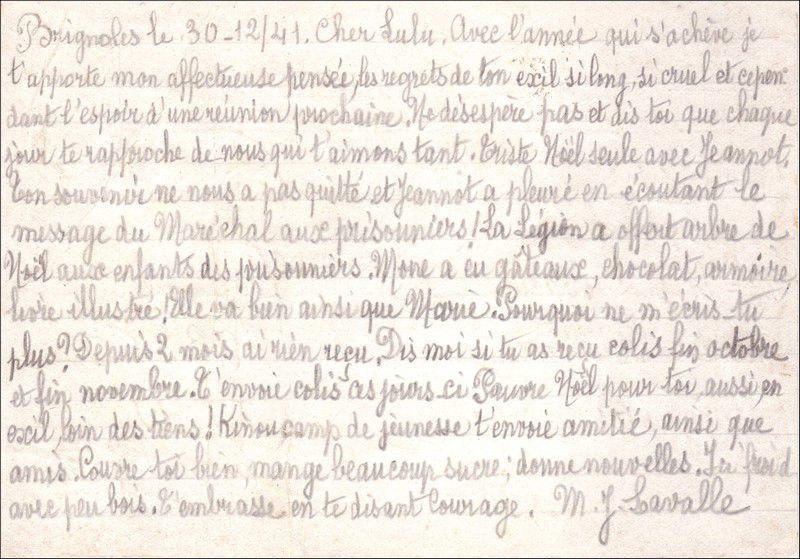 Brignoles le 30-12/41. Cher Lulu. Avec l'année qui s'achève je
t'apporte mon affectueuse pensée, les regrets de ton exil si long, si cruel et cepen
dant l'espoir d'une réunion prochaine. Ne désespère pas et dis toi que chaque
jour te rapproche de nous qui t'aimons tant. Triste Noël seule avec Jeannot.
Ton souvenir ne nous a pas quitté et Jeannot a pleuré en écoutant le
message du Maréchal aux prisonniers ! La Légion a offert arbre de
Noël aux enfants des prisonniers. Mone a eu gâteaux, chocolat, armoire,
livre illustré ! Elle va bien ainsi que Marie. Pourquoi ne m'écris-tu
plus ? Depuis 2 mois, ai rien reçu. Dis moi si tu as reçu colis fin octobre
et fin novembre. T'envoie colis ces jours-ci Pauvre Noël pour toi, aussi, en
exil, loin des tiens ! Kinou camp de jeunesse t'envoie amitié, ainsi que
amis. Couvre toi bien, mange beaucoup sucre ; donne nouvelles. Ici froid
avec peu bois. T'embrasse en te disant Courage. M. J. Lavalle